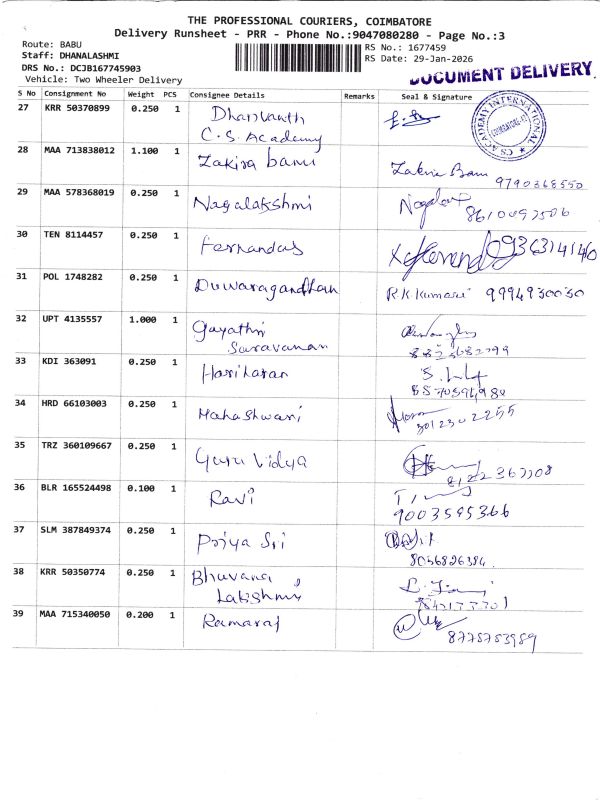 THE PROFESSIONAL COURIERS, COIMBATORE
Delivery Runsheet - PRR - Phone No.:9047080280 - Page No.:3
Route: BABU
RS No.: 1677459
Staff: DHANALASHMI
RS Date: 29-Jan-2026
DRS No.: DCJB167745903
Vehicle: Two Wheeler Delivery
DOCUMENT DELIVERY
S No Consignment No Weight PCS Consignee Details Remarks Seal & Signature
27 KRR 50370899 0.250 1 Dhanvanth
C.S. Academy
CS ACADEMY INTERNATIONAL
28 MAA 713838012 1.100 1 Zakira banu
9790368550
29 MAA 578368019 0.250 1 Nagalakshmi
30 TEN 8114457 0.250 1 Fernandas
31 POL 1748282 0.250 1 Duwaragandhan R.K.Kumari 9994930030
32 UPT 4135557 1.000 1 Gayathri
Saravanan
33 KDI 363091 0.250 1 Hariharan
34 HRD 66103003 0.250 1 Mahashwari
35 TRZ 360109667 0.250 1 Guru Vidya
36 BLR 165524498 0.100 1 Ravi
9003595366
37 SLM 387849374 0.250 1 Priya Sri
8056826384
38 KRR 50350774 0.250 1 Bhuvana
Lakshmi
39 MAA 715340050 0.200 1 Ramaraj
8778753989